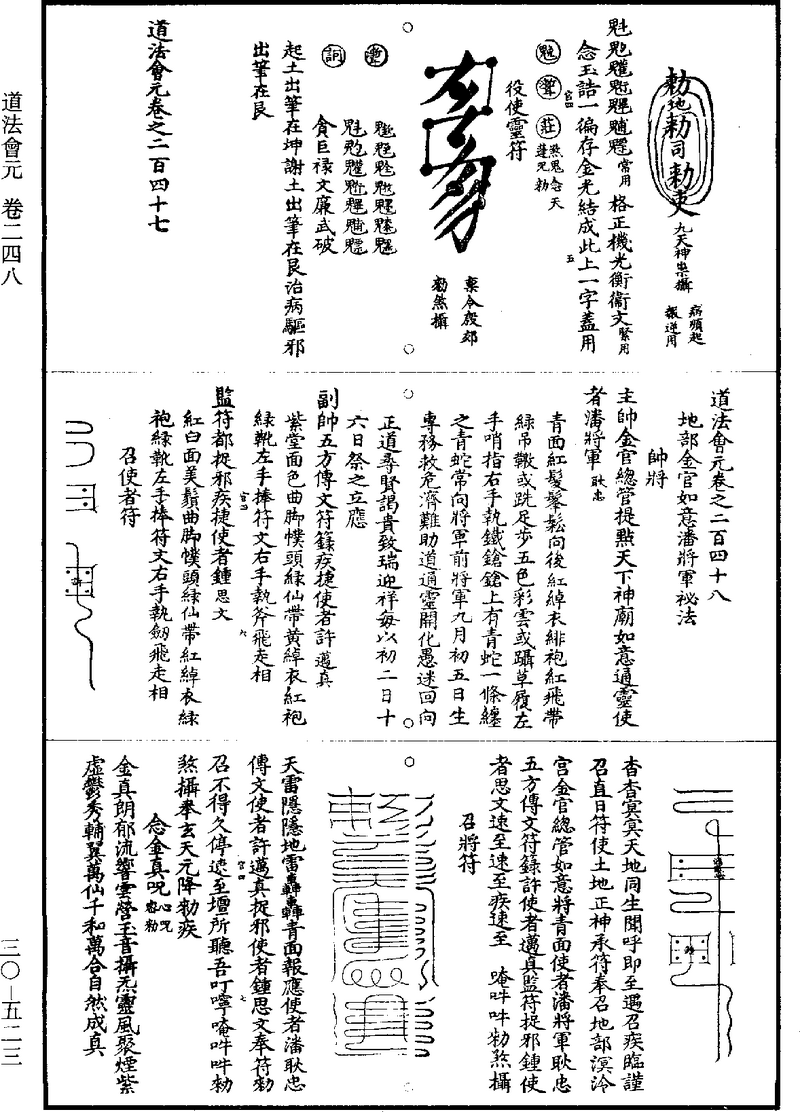 道法會元 卷二四八
三〇—五二三
勑地勑司勑吏
九天神煞攝
病順起
報逆用
魁𩲃䰢魓魒常用 格正機光衡衞文緊用
念玉誥一徧存金光結成此上一字蓋用
役使靈符
稟令殿郊
勑煞攝
貪巨禄文廉武破
起土出筆在坤謝土出筆在艮治病驅邪
出筆在艮
道法會元卷之二百四十七
道法會元卷之二百四十八
地部金官如意潘將軍祕法
帥將
主帥金官總管提點天下神廟如意通靈使
者潘將軍耿忠
青面紅髮鬅鬆向後紅綽衣緋袍紅飛帶
綠吊鞿或跣足步五色彩雲或躡草履左
手哨指右手執鐵鎗鎗上有青蛇一條纏
之青蛇常向將軍前將軍九月初五日生
專務救危濟難助道通靈開化愚迷回向
正道尋賢謁貴致瑞迎祥每以初二日十
六日祭之立應
副帥五方傳文符籙疾捷使者許邁真
紫堂面色曲脚幞頭緑仙帶黄綽衣紅袍
緑靴左手捧符文右手執斧飛走相
監符都捉邪疾捷使者鍾思文
紅白面美鬚曲脚幞頭緑仙帶紅綽衣緑
袍緑靴左手捧符文右手執劒飛走相
召使者符
杳杳冥冥天地同生聞呼即至遇召疾臨謹
召直日符使土地正神承符奉召地部溟泠
宫金官總管如意將青面使者潘將軍耿忠
五方傳文符籙許使者邁真監符捉邪鍾使
者思文速至速至疾速至 唵吽吽勑煞攝
召將符
天雷隱隱地雷轟轟青面報應使者潘耿忠
傳文使者許邁真捉邪使者鍾思文奉符勑
召不得久停速至壇所聽吾叮嚀唵吽吽勑
煞攝奉玄天元降勑疾
念金真呪
金真朗郁流響雲營玉音攝炁靈風聚煙紫
虛鬱秀輔翼萬仙千和萬合自然成真